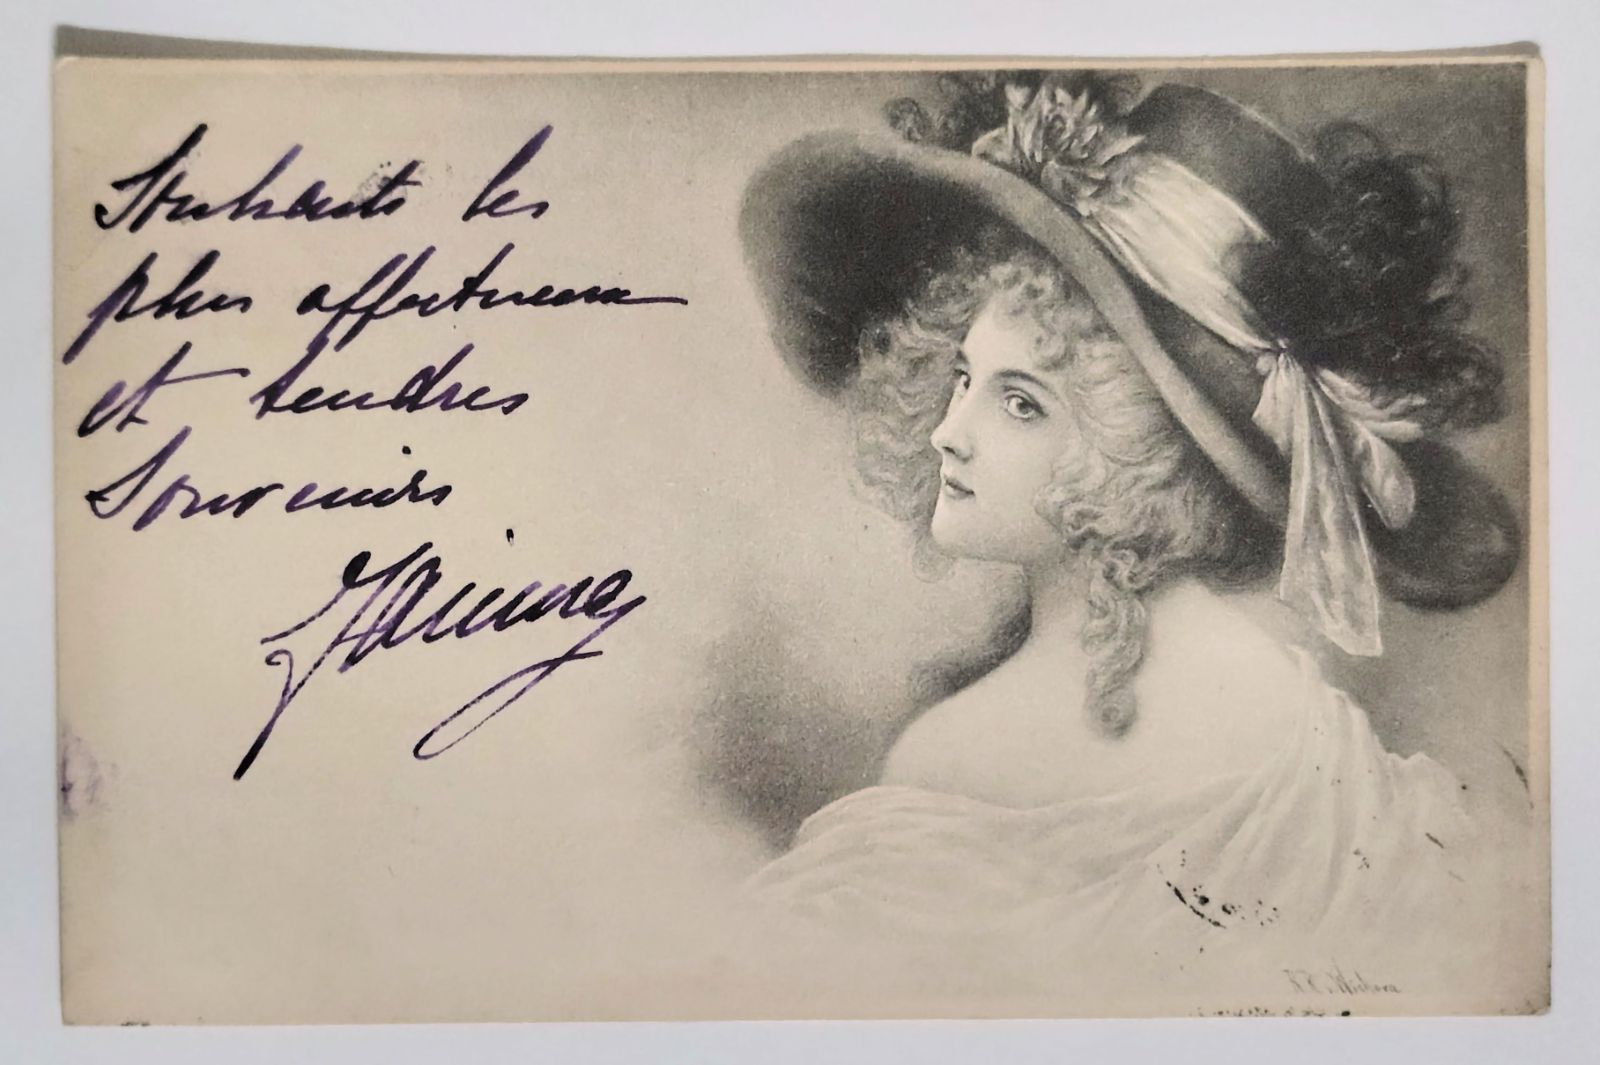 Souhaits les
plus affectueux
et tendres
Souvenirs
R.R. v. Wichera